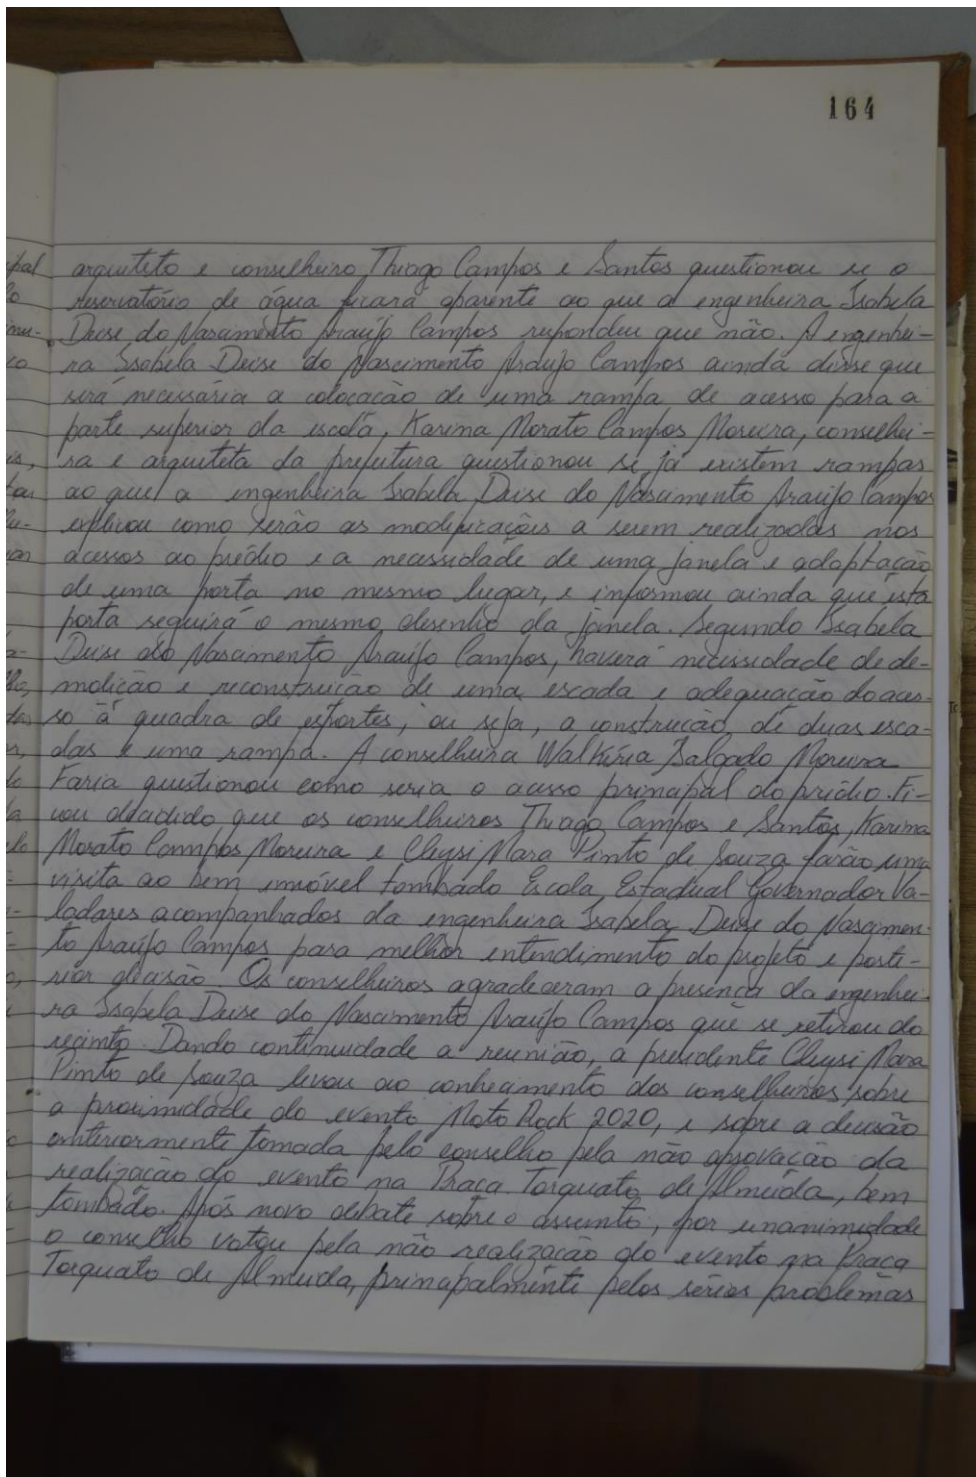 164
arquiteto e conselheiro, Thiago Campos e Santos questionou se o
reservatório de água ficará aparente ao que a engenheira Isabela
Deise do Nascimento Araújo Campos respondeu que não. A engenhei-
ra Isabela Deise do Nascimento Araújo Campos ainda disse que
será necessária a colocação de uma rampa de acesso para a
parte superior da escola, Karina Morato Campos Moreira, conselhei-
ra e arquiteta da prefeitura questionou se já existem rampas
ao que a engenheira Isabela Deise do Nascimento Araújo Campos
explicou como serão as modificações a serem realizadas nos
acessos ao prédio e a necessidade de uma janela e adaptação
de uma porta no mesmo lugar, e informou ainda que esta
porta seguirá o mesmo desenho da janela. Segundo Isabela
Deise do Nascimento Araújo Campos, haverá necessidade de de-
molição e reconstruição de uma escada e adequação do aces-
so à quadra de esportes, ou seja, a construção de duas esca-
das e uma rampa. A conselheira Walkíria Salgado Moreira
Faria questionou como seria o acesso principal do prédio. Fi-
cou decidido que os conselheiros Thiago Campos e Santos, Karina
Morato Campos Moreira e Cleysi Mara Pinto de Souza farão uma
visita ao bem imóvel tombado Escola Estadual Governador Va-
ladares acompanhados da engenheira Isabela Deise do Nascimen-
to Araújo Campos para melhor entendimento do projeto e poste-
rior decisão. Os conselheiros agradeceram a presença da engenhei-
ra Isabela Deise do Nascimento Araújo Campos que se retirou do
recinto. Dando continuidade a reunião, a presidente Cleysi Mara
Pinto de Souza levou ao conhecimento dos conselheiros sobre
a proximidade do evento Moto Rock 2020, e sobre a decisão
anteriormente tomada pelo conselho pela não aprovação da
realização do evento na Praça Torquato de Almeida, bem
tombado. Após novo debate sobre o assunto, por unanimidade
o conselho votou pela não realização do evento na Praça
Torquato de Almeida, principalmente pelos sérios problemas